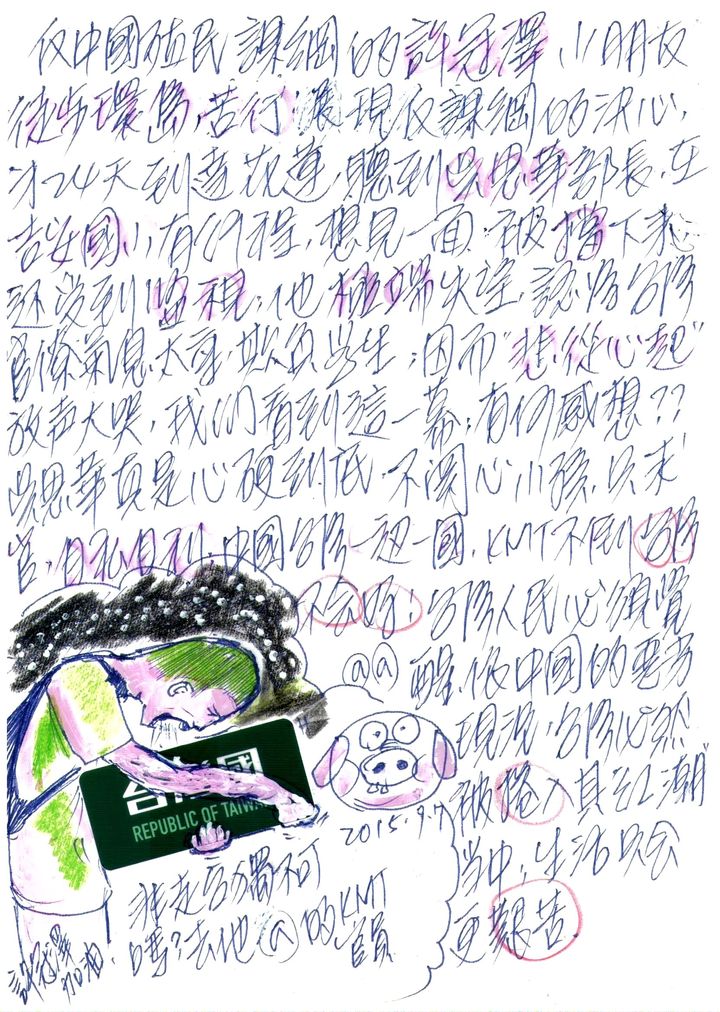 仅中國殖民課綱的許冠澤小朋友
徒步環島,苦行 展現仅課綱的決心,
才24天到達花蓮,聽到吳思華部長,在
吉安國小有行程,想見一面,被擋下來
还受到監視,他極端失望,認為台湾
官僚氣息太重,欺負学生,因而"悲從心起"
放声大哭,我们看到這一幕,有何感想??
吳思華真是心硬到底,不関心小孩,只求
官,自私自利,中國台湾一边一國,KMT不倒台湾
不会好!台湾人民必須覺
@@醒,依中國的惡劣
現況,台湾必然
被捲入其"紅潮"
當中,生活只会
更艱苦
台灣國
REPUBLIC OF TAIWAN
2015.9.7
非走台獨不可
嗎?去他@的KMT
官員
許冠澤
加油.